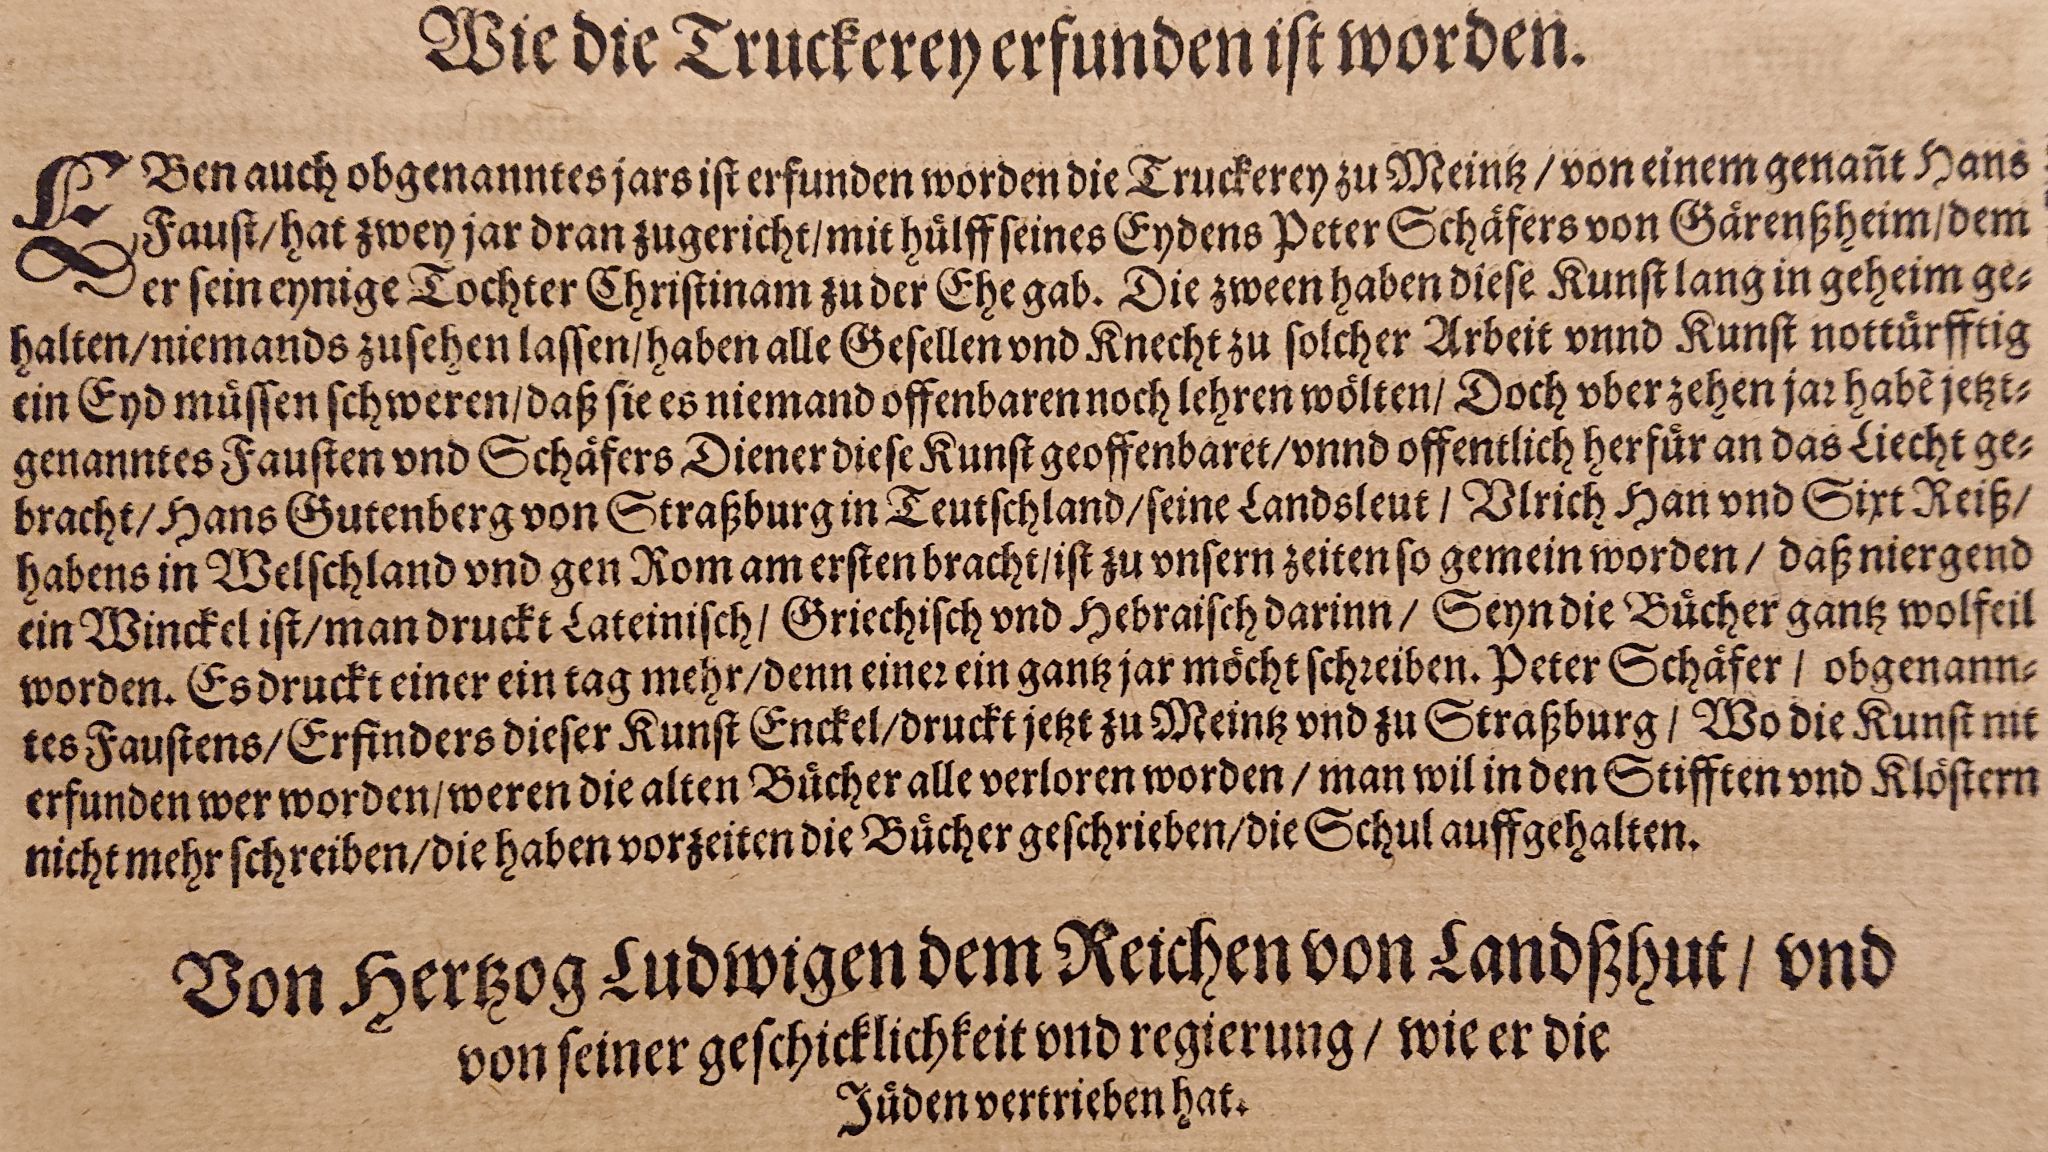 Wie die Truckerey erfunden ist worden.
EBen auch obgenanntes jars ist erfunden worden die Truckerey zu Meintz / von einem genañt Hans
Faust/hat zwey jar dran zugericht/mit huͤlff seines Eydens Peter Schaͤfers von Gaͤrenßheim/dem
er sein eynige Tochter Christinam zu der Ehe gab. Die zween haben diese Kunst lang in geheim ge-
halten/niemands zusehen lassen/haben alle Gesellen vnd Knecht zu solcher Arbeit vnnd Kunst nottuͤrfftig
ein Eyd muͤssen schweren/daß sie es niemand offenbaren noch lehren woͤlten/ Doch vber zehen jar habẽ jetzt-
genanntes Fausten vnd Schaͤfers Diener diese Kunst geoffenbaret/vnnd offentlich herfuͤr an das Liecht ge-
bracht/Hans Gutenberg von Straßburg in Teutschland/seine Landsleut / Vlrich Han vnd Sixt Reiß/
habens in Welschland vnd gen Rom am ersten bracht/ist zu vnsern zeiten so gemein worden / daß niergend
ein Winckel ist/man druckt Lateinisch/ Griechisch vnd Hebraisch darinn / Seyn die Buͤcher gantz wolfeil
worden. Es druckt einer ein tag mehr/denn einer ein gantz jar moͤcht schreiben. Peter Schaͤfer / obgenann-
tes Faustens/Erfinders dieser Kunst Enckel/druckt jetzt zu Meintz vnd zu Straßburg / Wo die Kunst nit
erfunden wer worden/weren die alten Buͤcher alle verloren worden / man wil in den Stifften vnd Kloͤstern
nicht mehr schreiben/die haben vorzeiten die Buͤcher geschrieben/die Schul auffgehalten.
Von Hertzog Ludwigen dem Reichen von Landßhut / vnd
von seiner geschicklichkeit vnd regierung / wie er die
Juͤden vertrieben hat.